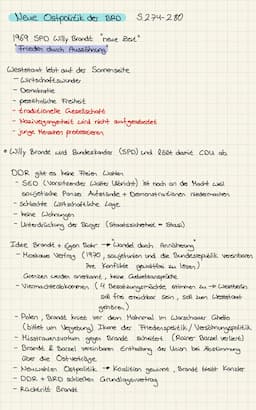 Neue Ostpolitik der BRD S. 274-280
1969 SPD Willy Brandt "neue Zeit"
"Frieden durch Aussöhnung"
Weststaat lebt auf der Sonnenseite
- Wirtschaftswunder
- Demokratie
- persönliche Freiheit
- traditionelle Gesellschaft
- Nazivergangenheit wird nicht aufgearbeitet
- junge Menschen protestieren
* Willy Brandt wird Bundeskanzler (SPD) und löst damit CDU ab
DDR gibt es keine freien Wahlen
- SED (Vorsitzender Walter Ulbricht) ist noch an der Macht weil
sowjetische Panzer Aufstände + Demonstrationen niedermachen
- schlechte wirtschaftliche Lage
- keine Wohnungen
- Unterdrückung der Bürger (Staatssicherheit = Stasi)
Idee Brandt + Egon Bahr → "Wandel durch Annäherung"
- Moskauer Vertrag (1970, Sowjetunion und die Bundesrepublik vereinbaren
ihre Konflikte gewaltlos zu lösen)
Grenzen werden anerkannt, keine Gebietsansprüche
- Viermächteabkommen (4 Besatzungsmächte stimmen zu → Westberlin
soll frei erreichbar sein, soll zum Weststaat
gehören)
- Polen, Brandt kniet vor dem Mahnmal im Warschauer Ghetto
(bittet um Vergebung) Ikone der Friedenspolitik / Versöhnungspolitik
- Misstrauensvotum gegen Brandt scheitert (Rainer Barzel verliert)
- Brandt & Barzel vereinbaren Enthaltung der Union bei Abstimmung
über die Ostverträge
- Neuwahlen Ostpolitik → Koalition gewinnt, Brandt bleibt Kanzler
- DDR + BRD schließen Grundlagenvertrag
- Rücktritt Brandt